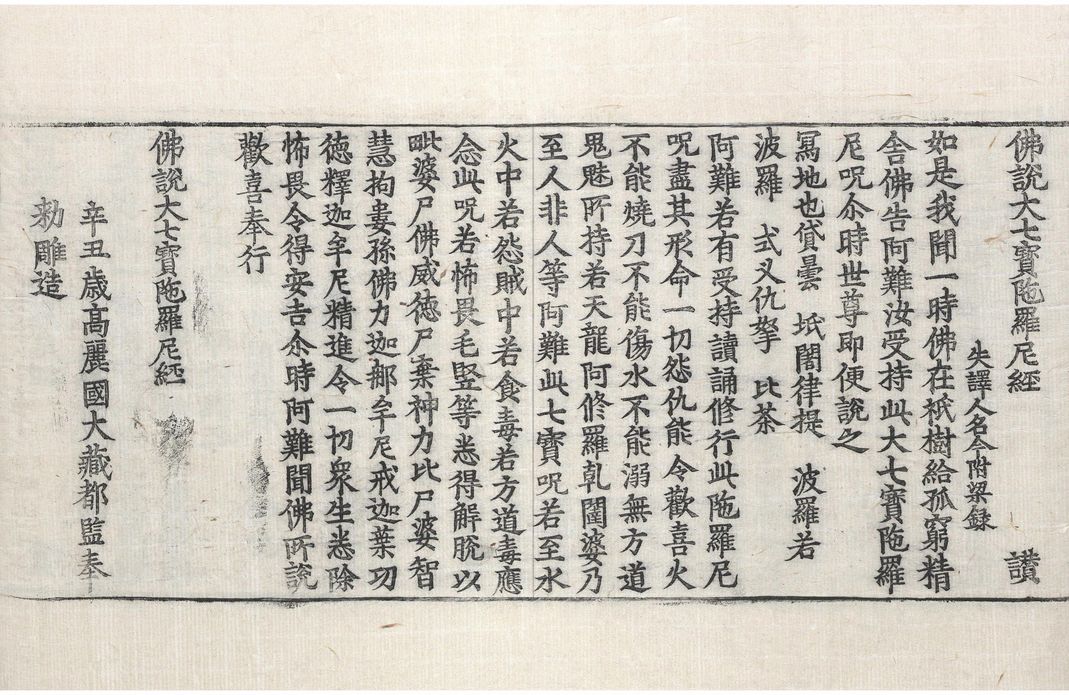 佛說大七寶陁羅尼經 讃
失譯人名今附梁録
如是我聞一時佛在祇樹給孤窮精
舎佛告阿難汝受持此大七寶陁羅
尼呪尒時世尊即便說之
冩地也貸曇 坻闍律提 波羅若
波羅 式叉仇拏 比茶
阿難若有受持讀誦修行此陁羅尼
呪盡其形命一切怨仇能令歡喜火
不能燒刀不能傷水不能溺無方道
鬼魅所持若天龍阿修羅乹闥婆乃
至人非人等阿難此七寶呪若至水
火中若怨賊中若食毒若方道毒應
念此呪若怖畏毛竪等悉得解脫以
毗婆尸佛威德尸棄神力比尸婆智
慧拘婁孫佛力迦那牟尼戒迦葉功
德釋迦牟尼精進令一切衆生悉除
怖畏令得安吉尒時阿難聞佛所說
歡喜奉行
佛說大七寶陁羅尼經
辛丑歳髙麗國大藏都監奉
勅雕造